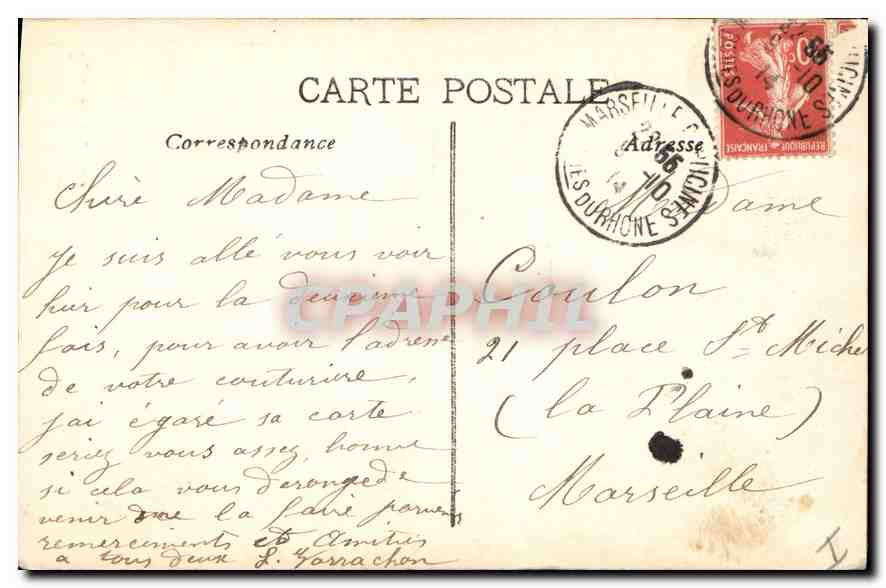 CARTE POSTALE
Correspondance
Adresse
Chère Madame
Je suis allé vous voir
hier pour la deuxième
fois, pour avoir l'adresse
de votre couturière,
j'ai égaré sa carte
seriez vous assez bonne
si cela vous derange de
venir me la faire parvenir
remerciments et Amitiés
a tous deux
Madame
Coulon
21 place St Michel
(La Plaine)
Marseille
MARSEILLE CAPUCINES
BES DU RHONE
POSTES
REPUBLIQUE FRANÇAISE
BES DU RHONE
CPAPHIL